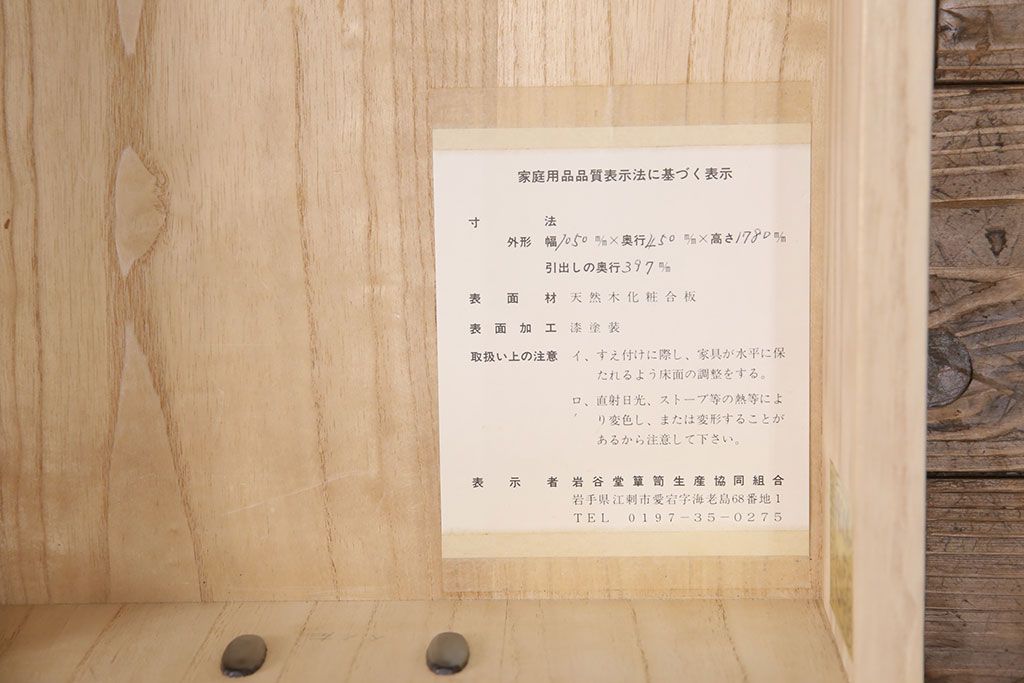 家庭用品品質表示法に基づく表示
寸法
外形 幅1050㎜×奥行450㎜×高さ1780㎜
引出しの奥行397㎜
表面材 天然木化粧合板
表面加工 漆塗装
取扱い上の注意 イ、すえ付けに際し、家具が水平に保
たれるよう床面の調整をする。
ロ、直射日光、ストーブ等の熱等によ
り変色し、または変形することが
あるから注意して下さい。
表示者 岩谷堂簞笥生産協同組合
岩手県江刺市愛宕字海老島68番地1
TEL 0197-35-0275